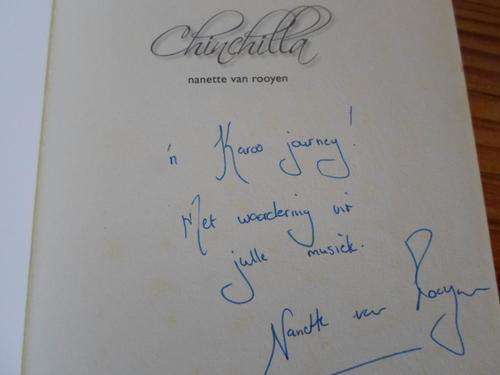 Chinchilla
nanette van rooyen
'n Karoo journey!
Met waardering vir
julle musiek.
Nanette van Rooyen